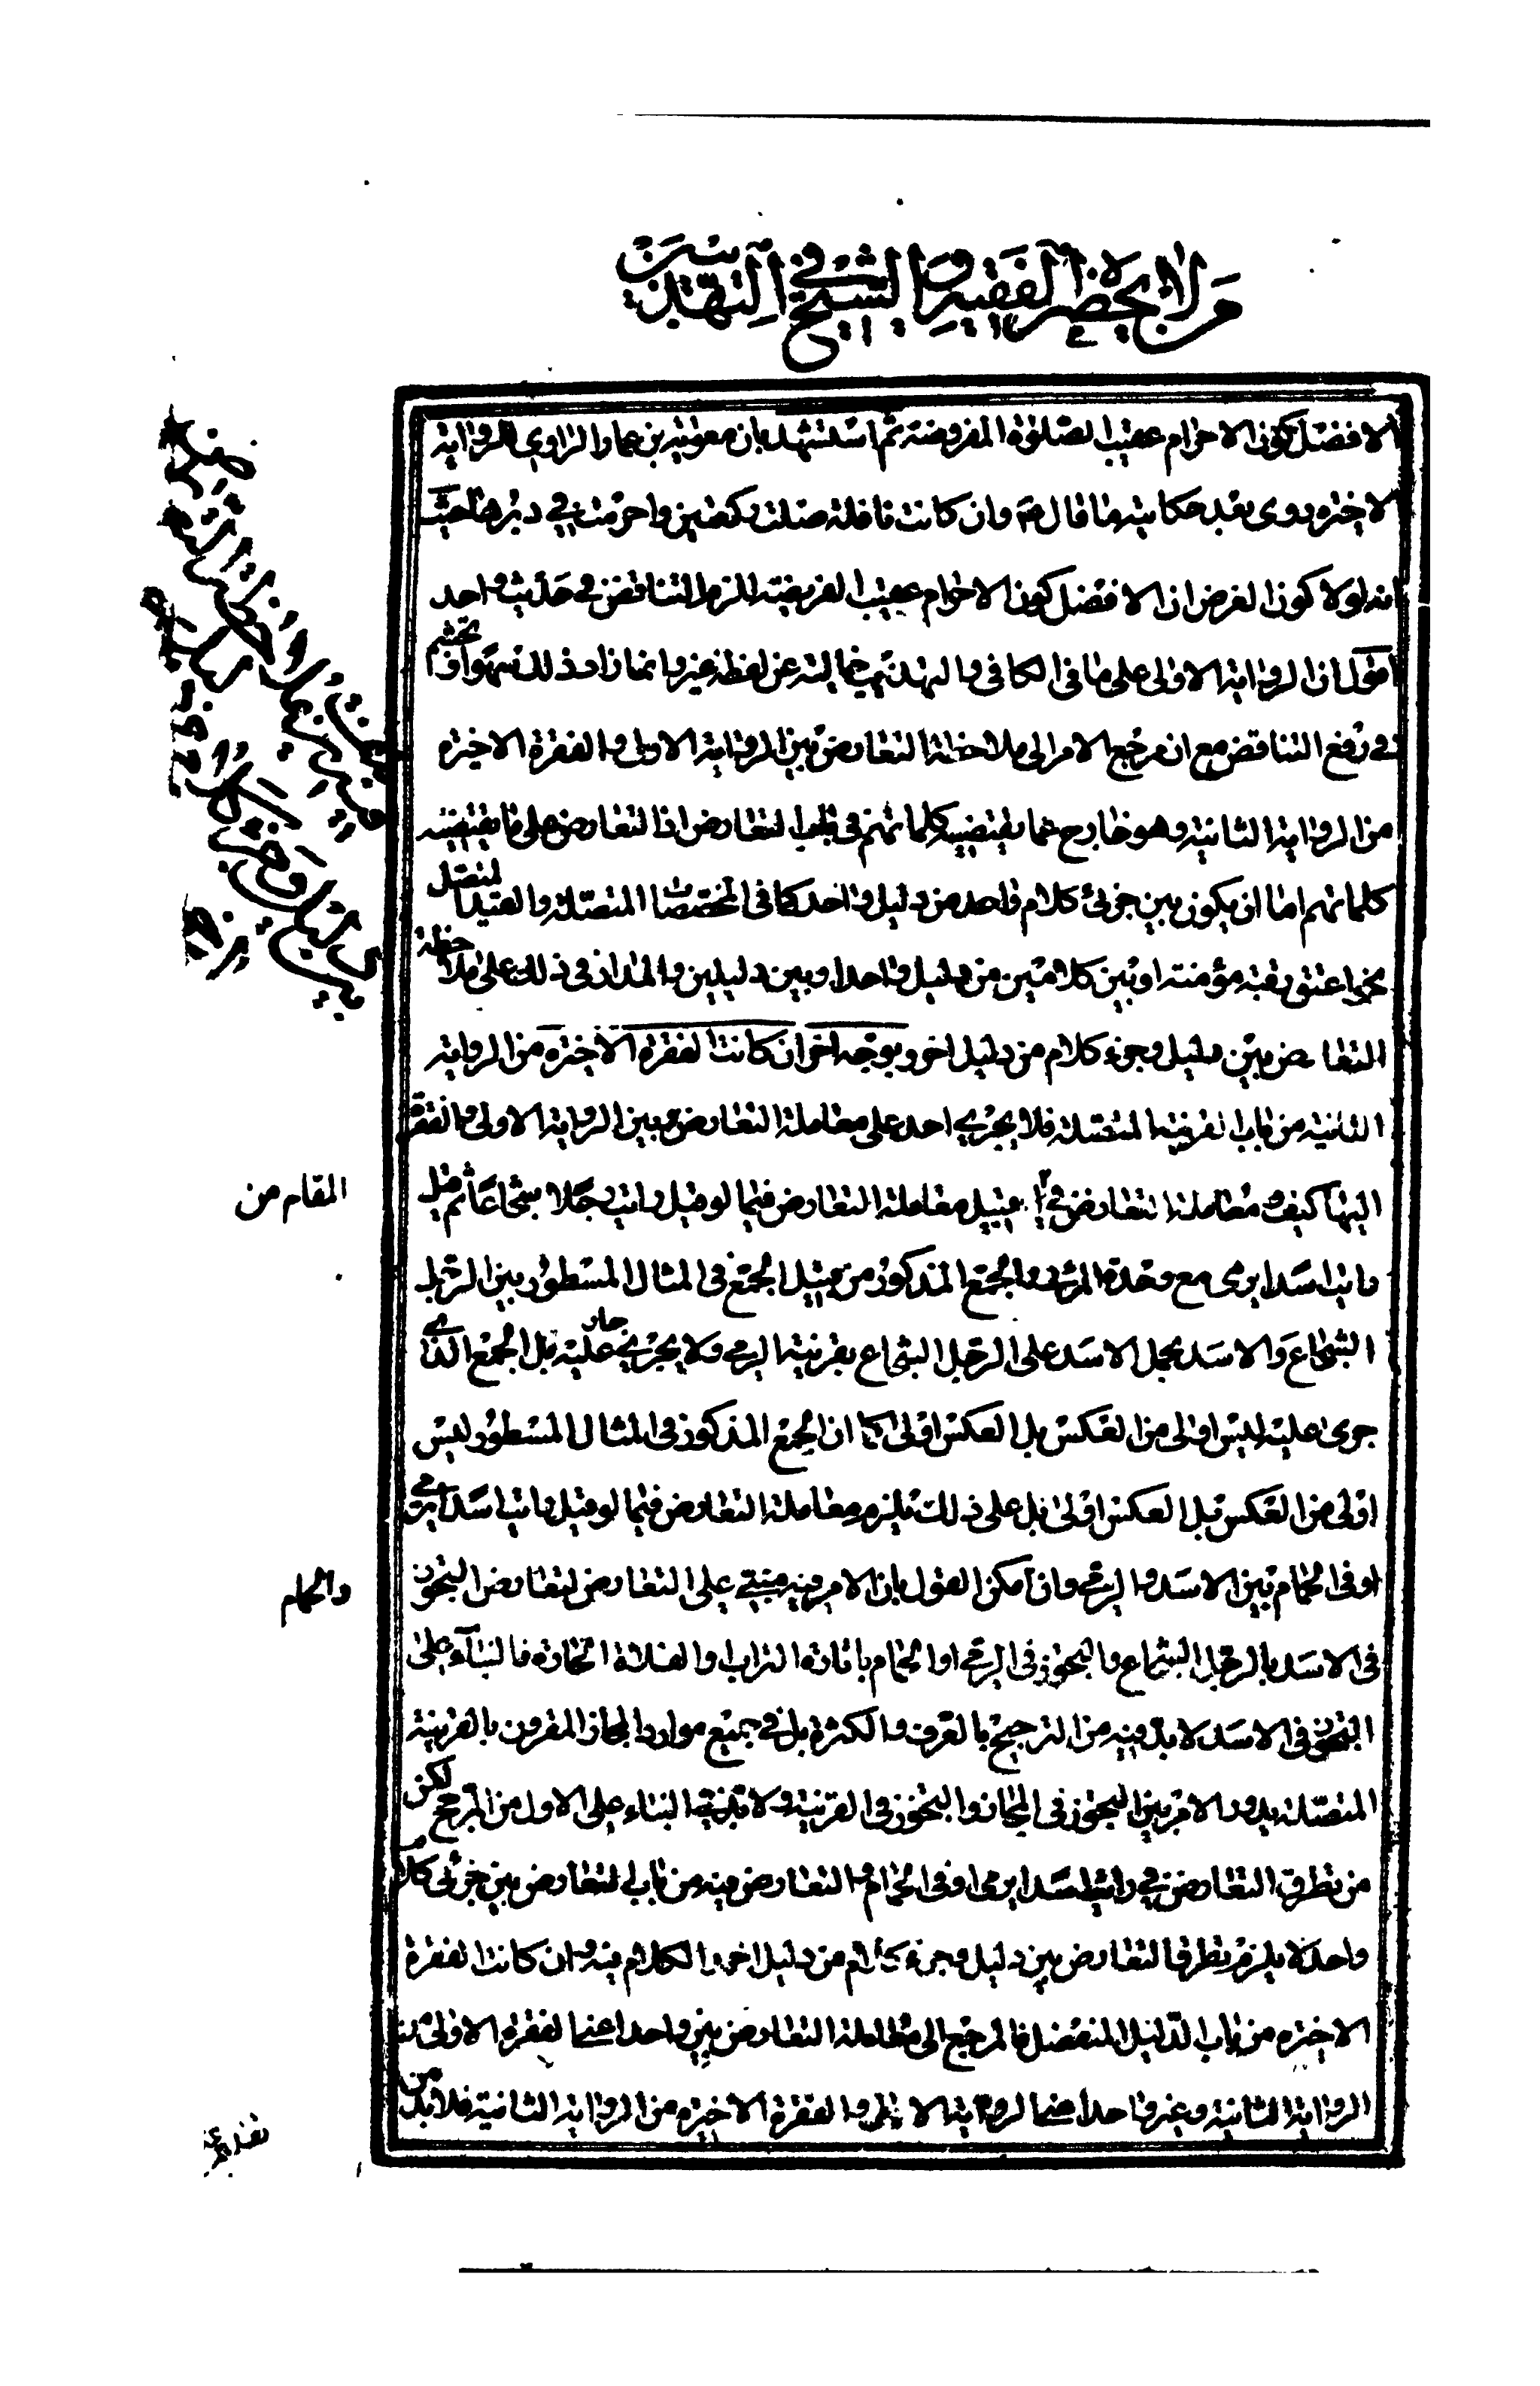 من لا يحضره الفقيه والشيخ في التهذيبين
الافضل كون الاحرام عقيب الصلوة المفروضة ثم استشهد بان معوية بن عمار الراوي للرواية
الاخيرة روى بعد حكاية ما قال مة وان كانت نافلة صليت ركعتين واحرمت في دبرها حيث
انه لولا كون الغرض ان الافضل كون الاحرام عقيب الفريضة للزم التناقض في حديث واحد
اقول ان الرواية الاولى على ما في الكافي والتهذيب خالية عن لفظة غير وانما زاده ذلك سهوا او تجشم
في رفع التناقض مع ان مرجع الامر الى ملاحظة التعارض بين الرواية الاولى والفقرة الاخيرة
من الرواية الثانية وهو خارج عما يقتضيه كلماتهم في باب التعارض اذ التعارض على ما يقتضيه
كلماتهم اما ان يكون بين جزئى كلام واحد من دليل واحد كما في المخصصات المتصلة والقيد المتصل
نحو اعتق رقبة مؤمنة او بين كلامين من دليل واحد او بين دليلين والمدار في ذلك على ملاحظة
التعارض بين دليل وجزء كلام من دليل اخر وبوجه اخر ان كانت الفقرة الاخيرة من الرواية
الثانية من باب القرينة المتصلة فلا يجري احد على معاملة التعارض وبين الرواية الاولى والفقرة
اليها كيف ومعاملة التعارض في المقام من قبيل معاملة التعارض فيما لو قيل رايت رجلا شجاعا ثم قيل
رايت اسدا يرمى مع وحدة المرئى والجمع المذكور من قبيل الجمع في المثال المسطور بين الرجل
الشجاع والاسد بحمل الاسد على الرجل الشجاع بقرينة الرمي ولا يجري جار عليه بل الجمع الذي
جرى عليه ليس اولى من العكس بل العكس اولى كما ان الجمع المذكور في المثال المسطور ليس
اولى من العكس بل العكس اولى بل على ذلك يلزم معاملة التعارض فيما لو قيل رايت اسدا يرمي
او في الحمام بين الاسد والرمي والحمام وان امكن القول بان الامر فيه مبتني على التعارض لتعارض التجوز
في الاسد بالرجل الشجاع والتجوز في الرمي او الحمام باثارة التراب والفلاة الحارة فالبناء على
التجوز في الاسد لا بد فيه من الترجيح بالعرف والكثرة بل في جميع موارد المجاز المقرون بالقرينة
المتصلة يدور الامر بين التجوز في المجاز والتجوز في القرينة ولا بد في البناء على الاول من المرجح لكن
من تطرق التعارض في رايت اسدا يرمى او في الحمام والتعارض فيه من باب التعارض بين جزئى كلام
واحد لا يلزم تطرق التعارض بين دليل وجزء كلام من دليل اخر والكلام فيه وان كانت الفقرة
الاخيرة من باب الدليل المنفصل فالمرجع الى معاملة التعارض بين واحد اعنى الفقرة الاولى من
الرواية الثانية وغير واحد اعنى الرواية الاولى والفقرة الاخيرة من الرواية الثانية فلا بد من